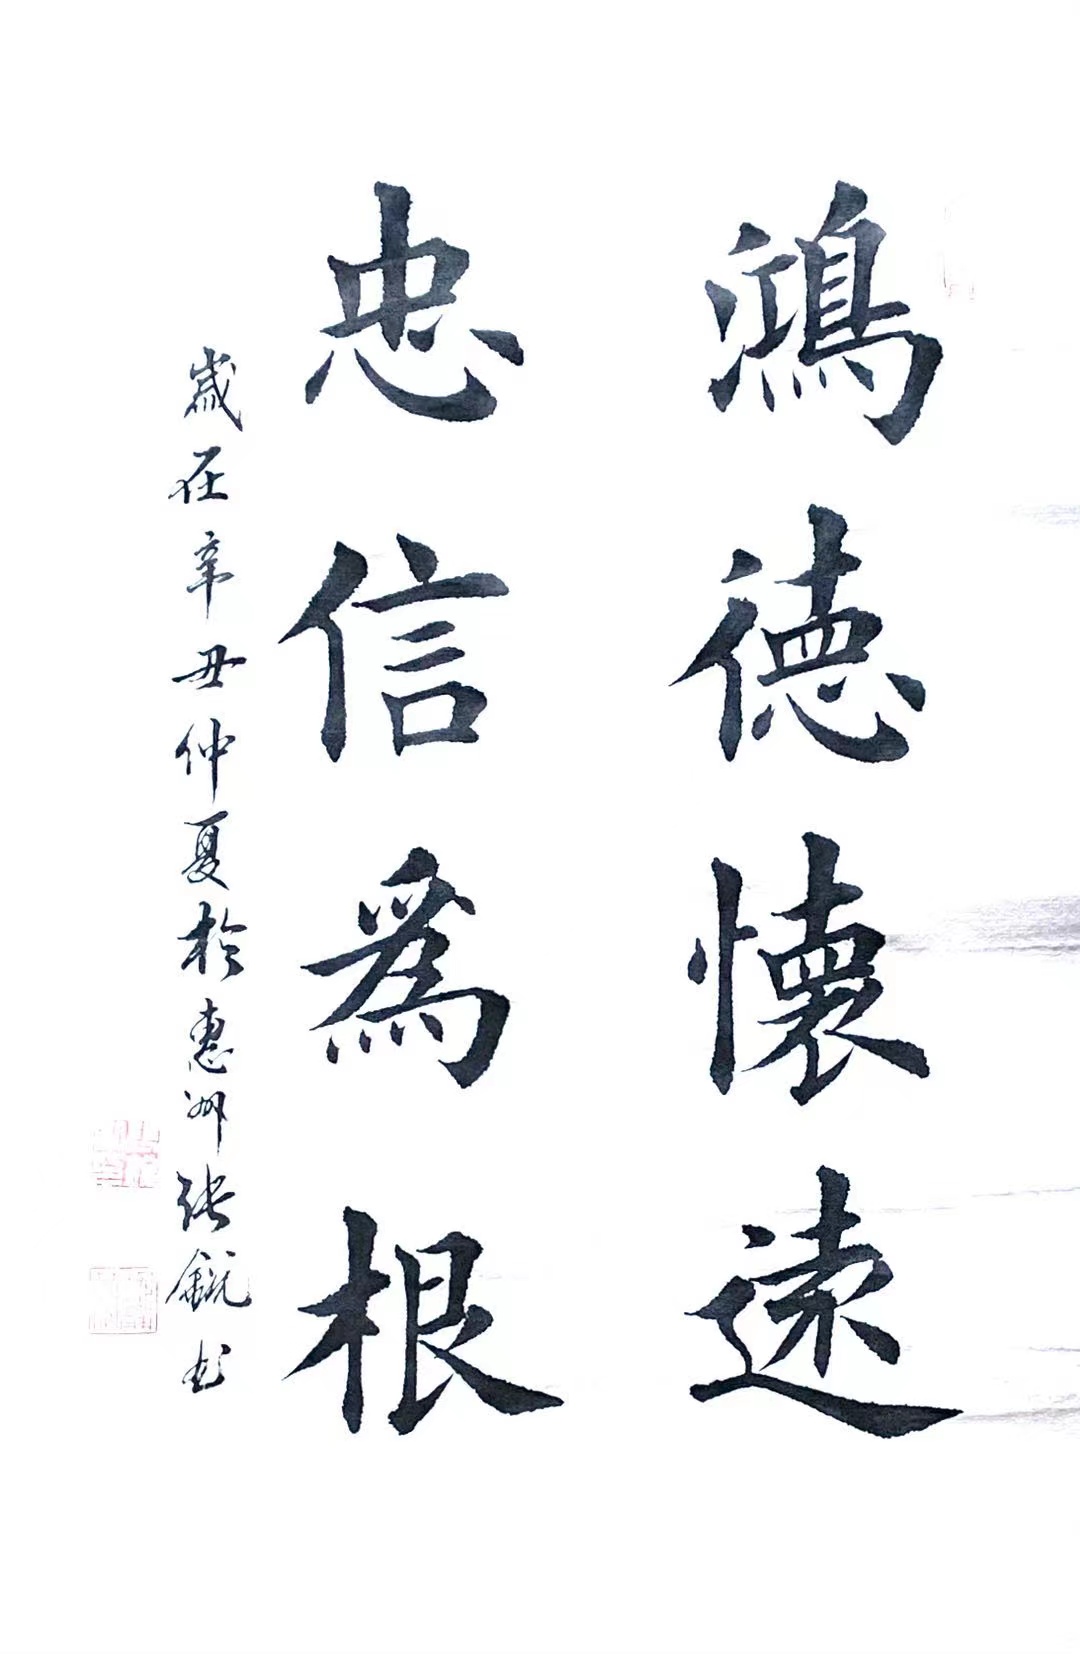 鴻德懷遠
忠信為根
歲在辛丑仲夏於惠州張銳书